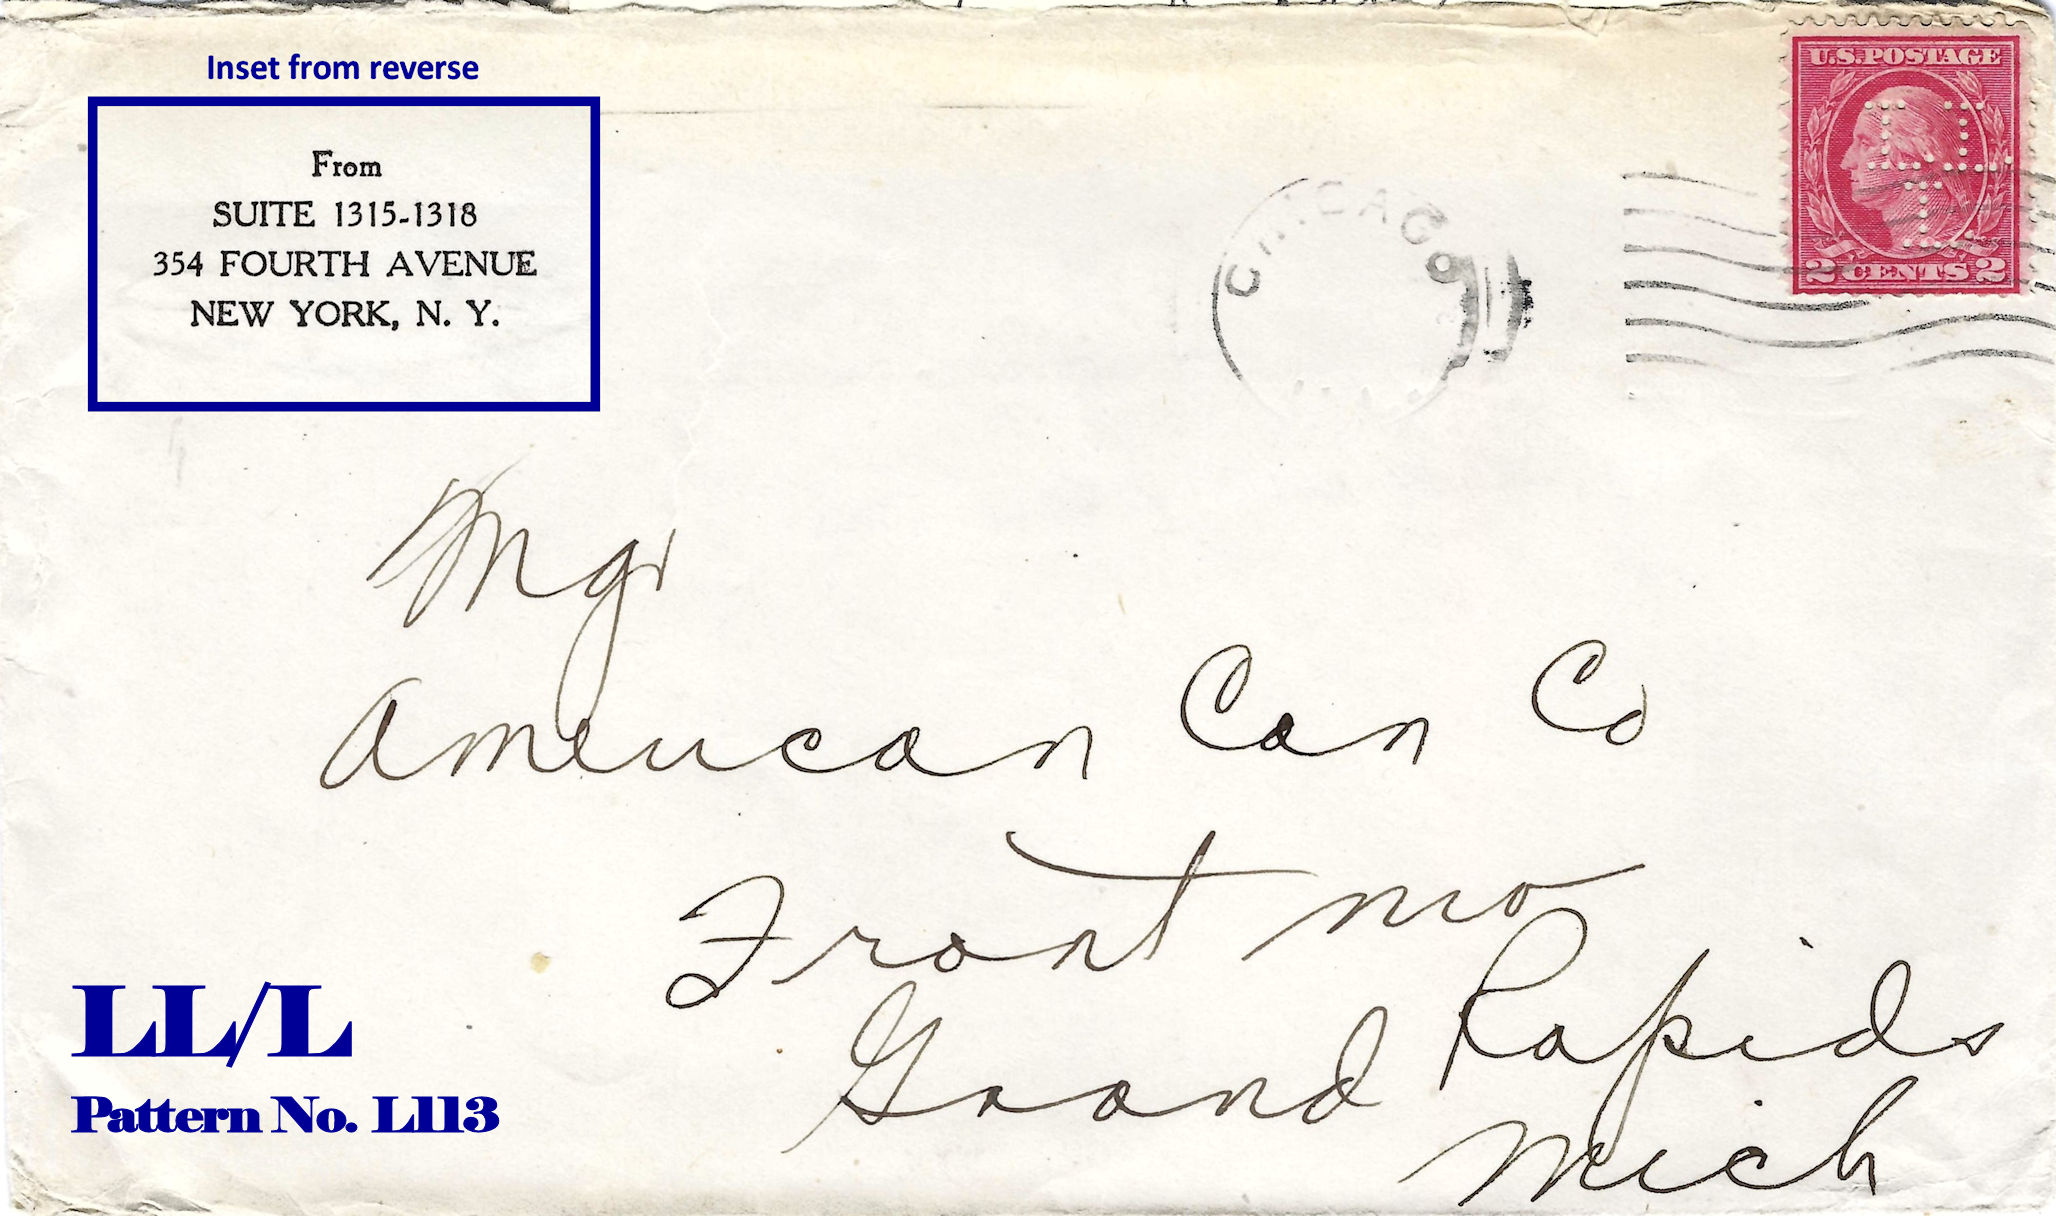 Inset from reverse
From
SUITE 1315-1318
354 FOURTH AVENUE
NEW YORK, N. Y.
U.S. POSTAGE
LL
L
2 CENTS 2
CHICAGO
Mgr
American Can Co
Front
Grand Rapids
Mich
LL/L
Pattern No. L113